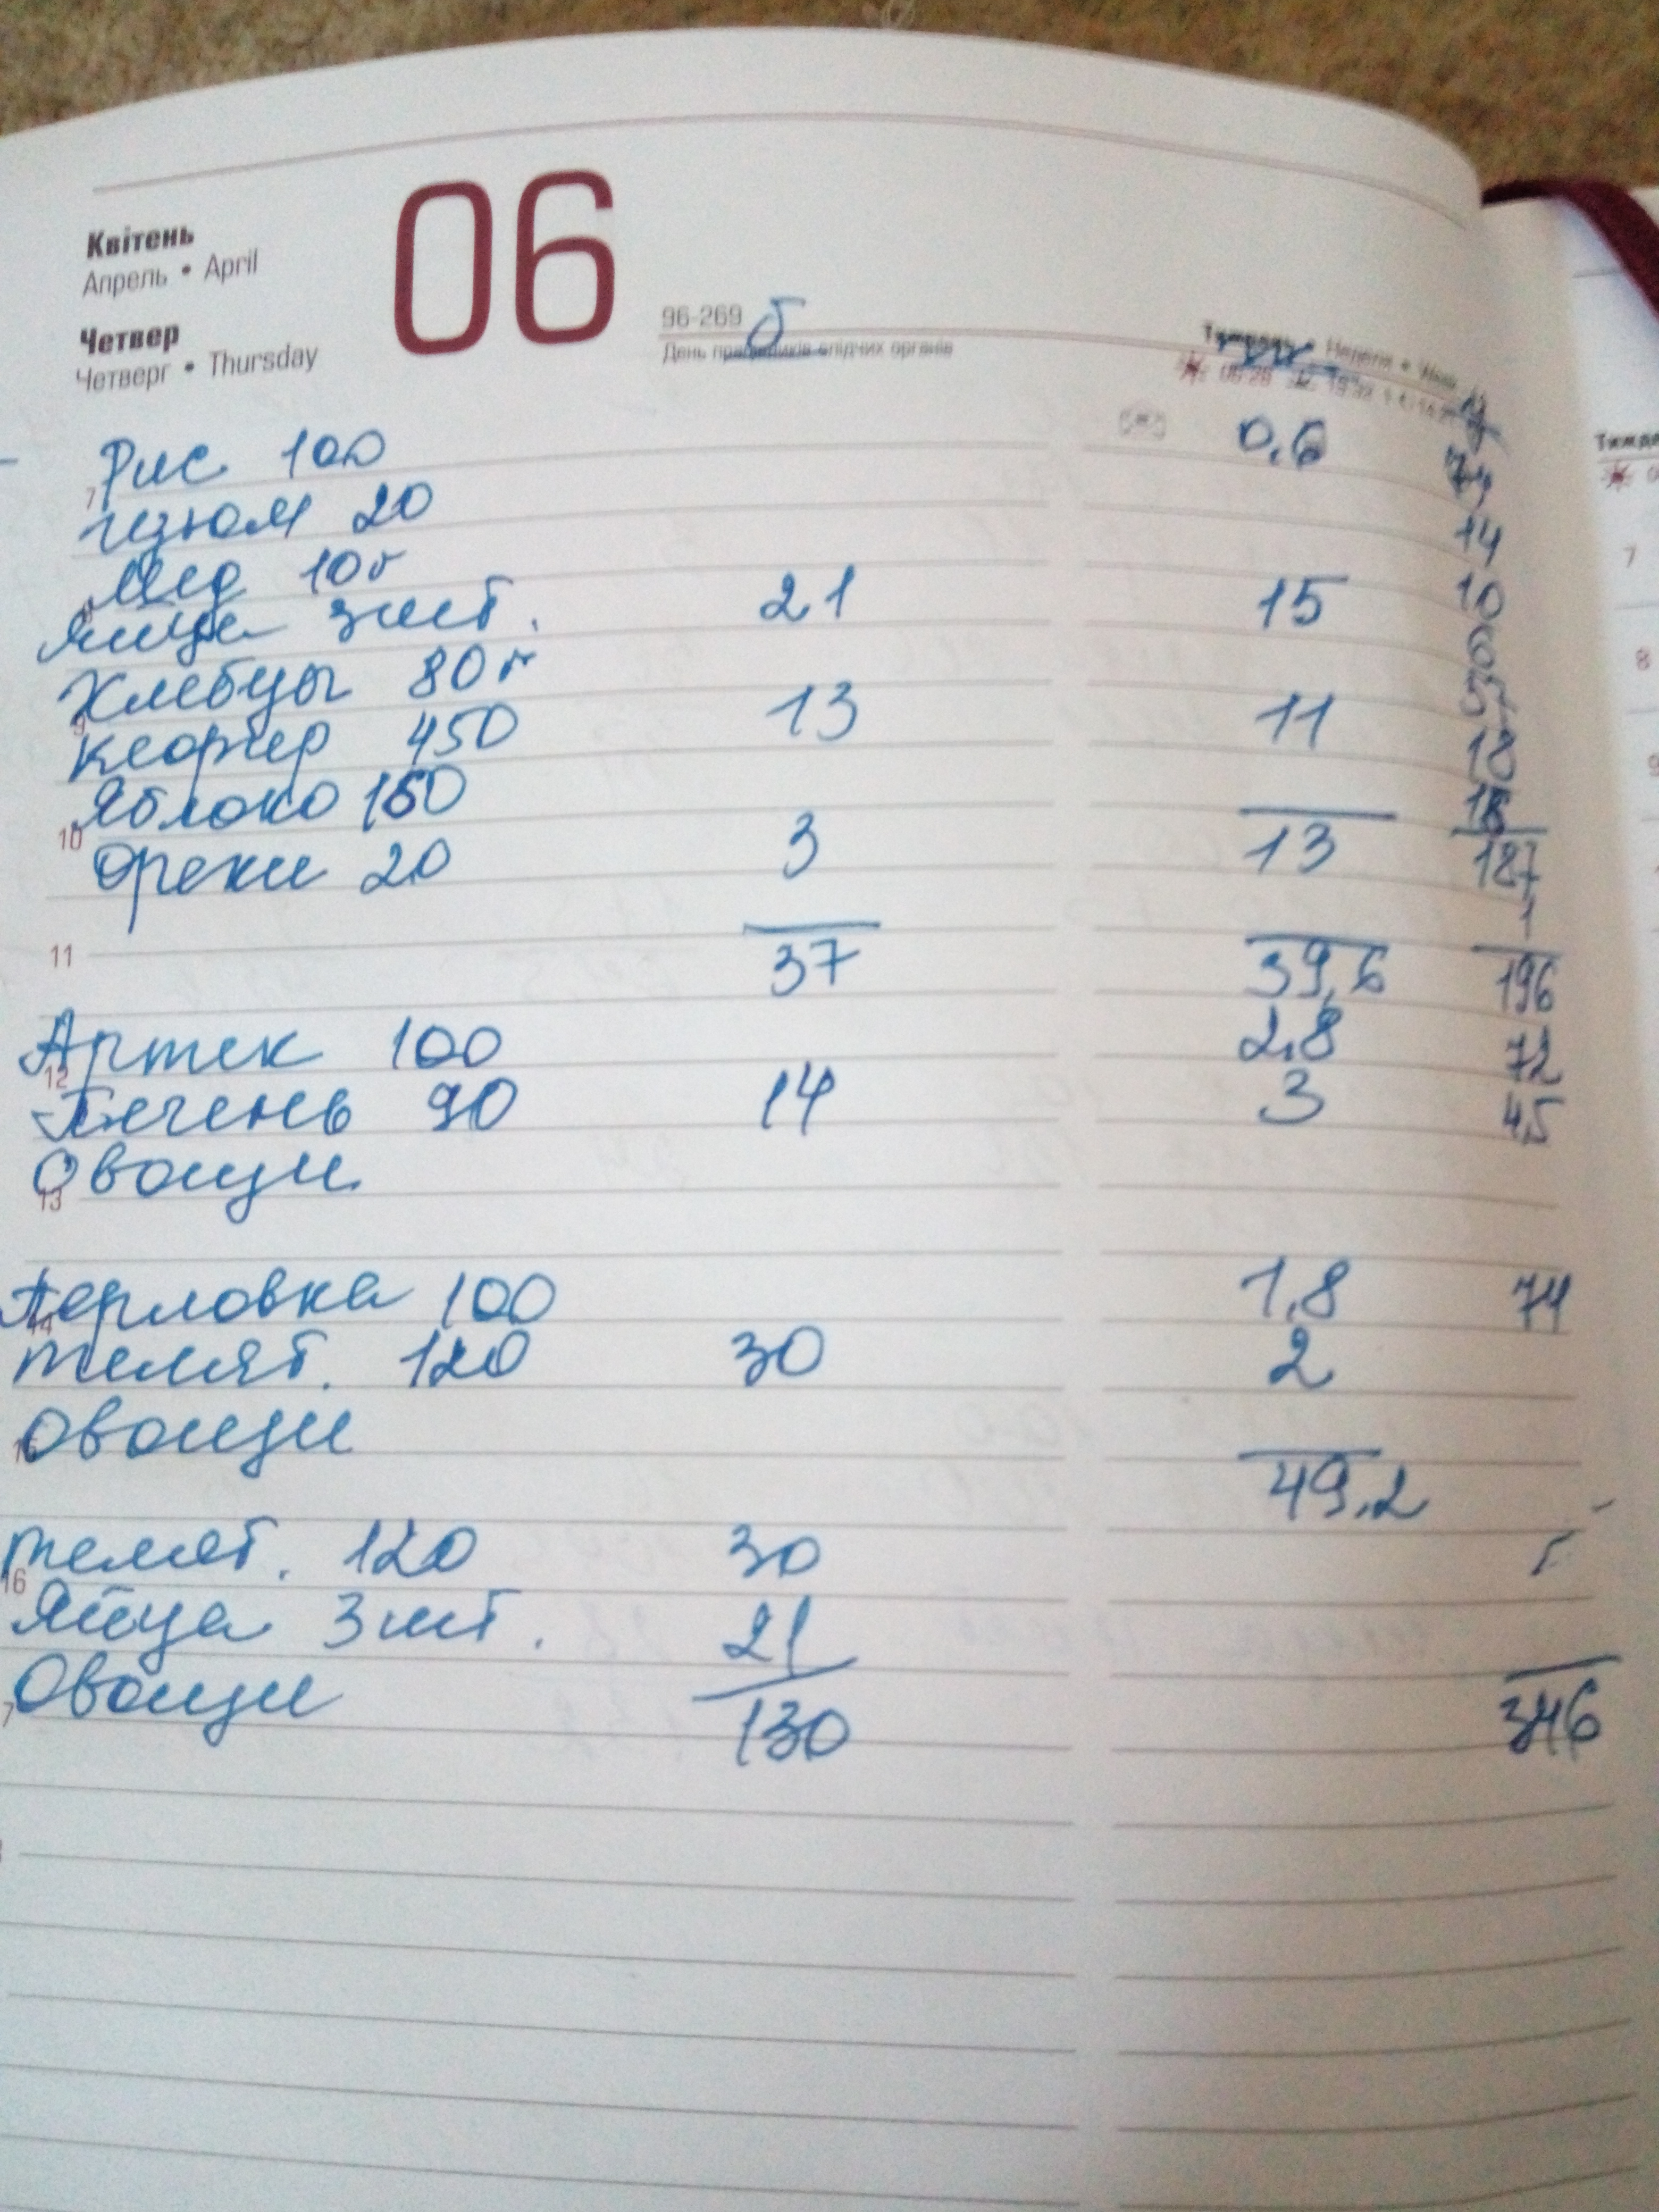 Квітень
Апрель • April
06
Четвер
Четверг • Thursday
96-269 б
День працівників слідчих органів
Тиждень • Неделя •
Рис 100 0,6 74
7
изюм 20 14
Мед 10г 10
Яйца 3 шт. 21 15
Хлебцы 80г 57
кефир 450 13 11 18
Яблоко 150
10
Орехи 20 3 13 187
1
11
37 39,6 196
Артек 100 2,8 72
12
Печень 90 14 3 4,5
Овощи
13
Перловка 100 1,8 74
14
телят. 120 30 2
Овощи
15
49,2
телят. 120 30
16
Яйца 3 шт. 21
Овощи 130 346
7
8
9